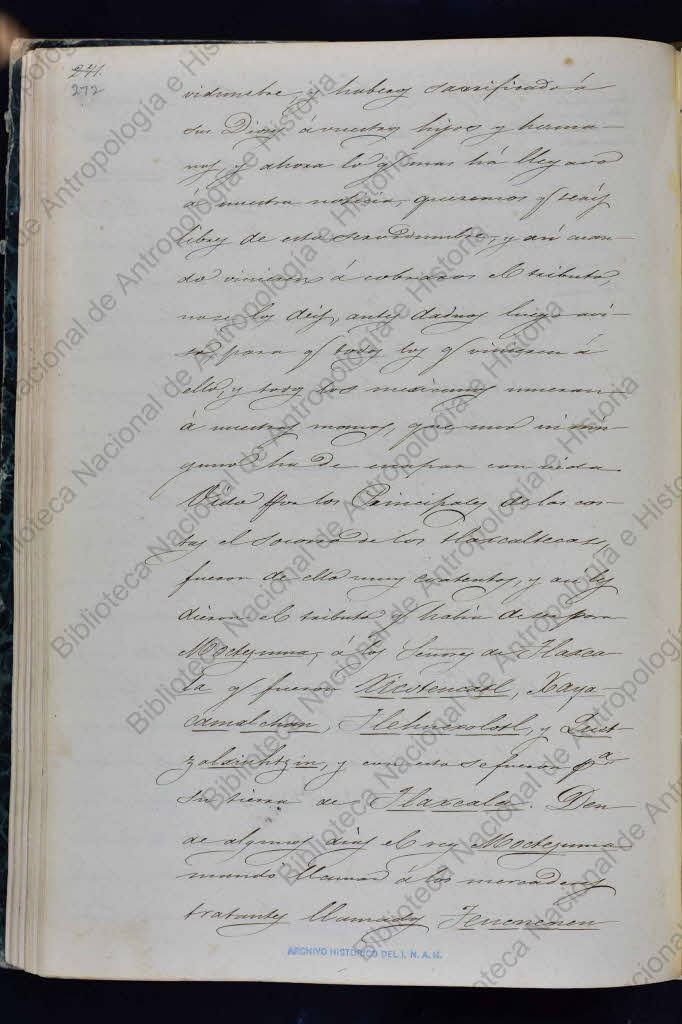 271.
272
vidumbre, y habeys sacrificado á
sus Dioses á vuestros hijos y herma-
nos, y ahora lo q mas há llegado
á nuestra noticia, queremos q seais
libres de esta servidumbre, y así cuan-
do vinieren á cobraros el tributo,
no se los deis, antes dadnos luego avi-
so, para q todos los q vinieren á
ello, y todos los mexicanos mueran
á nuestras manos, que uno ni nin-
guno ha de escapar con vida.
Oido por los Principales de las cos-
tas el socorro de los tlaxcaltecas,
fueron de ello muy contentos, y así les
dieron el tributo q había de ser para
Moctezuma, á los Señores de Tlaxca-
la q fueron Xicotencatl, Xaya-
camalchan, Tlehuexolotl, y Quet-
zalxiuhtzin, y con esto se fueron pa.
su tierra de Tlaxcala. Den-
de algunos dias el rey Moctezuma
mandó llamar á los mercaderes
tratantes llamados Teucnenen
ARCHIVO HISTORICO DEL I. N. A. H.
Biblioteca Nacional de Antropología e Historia